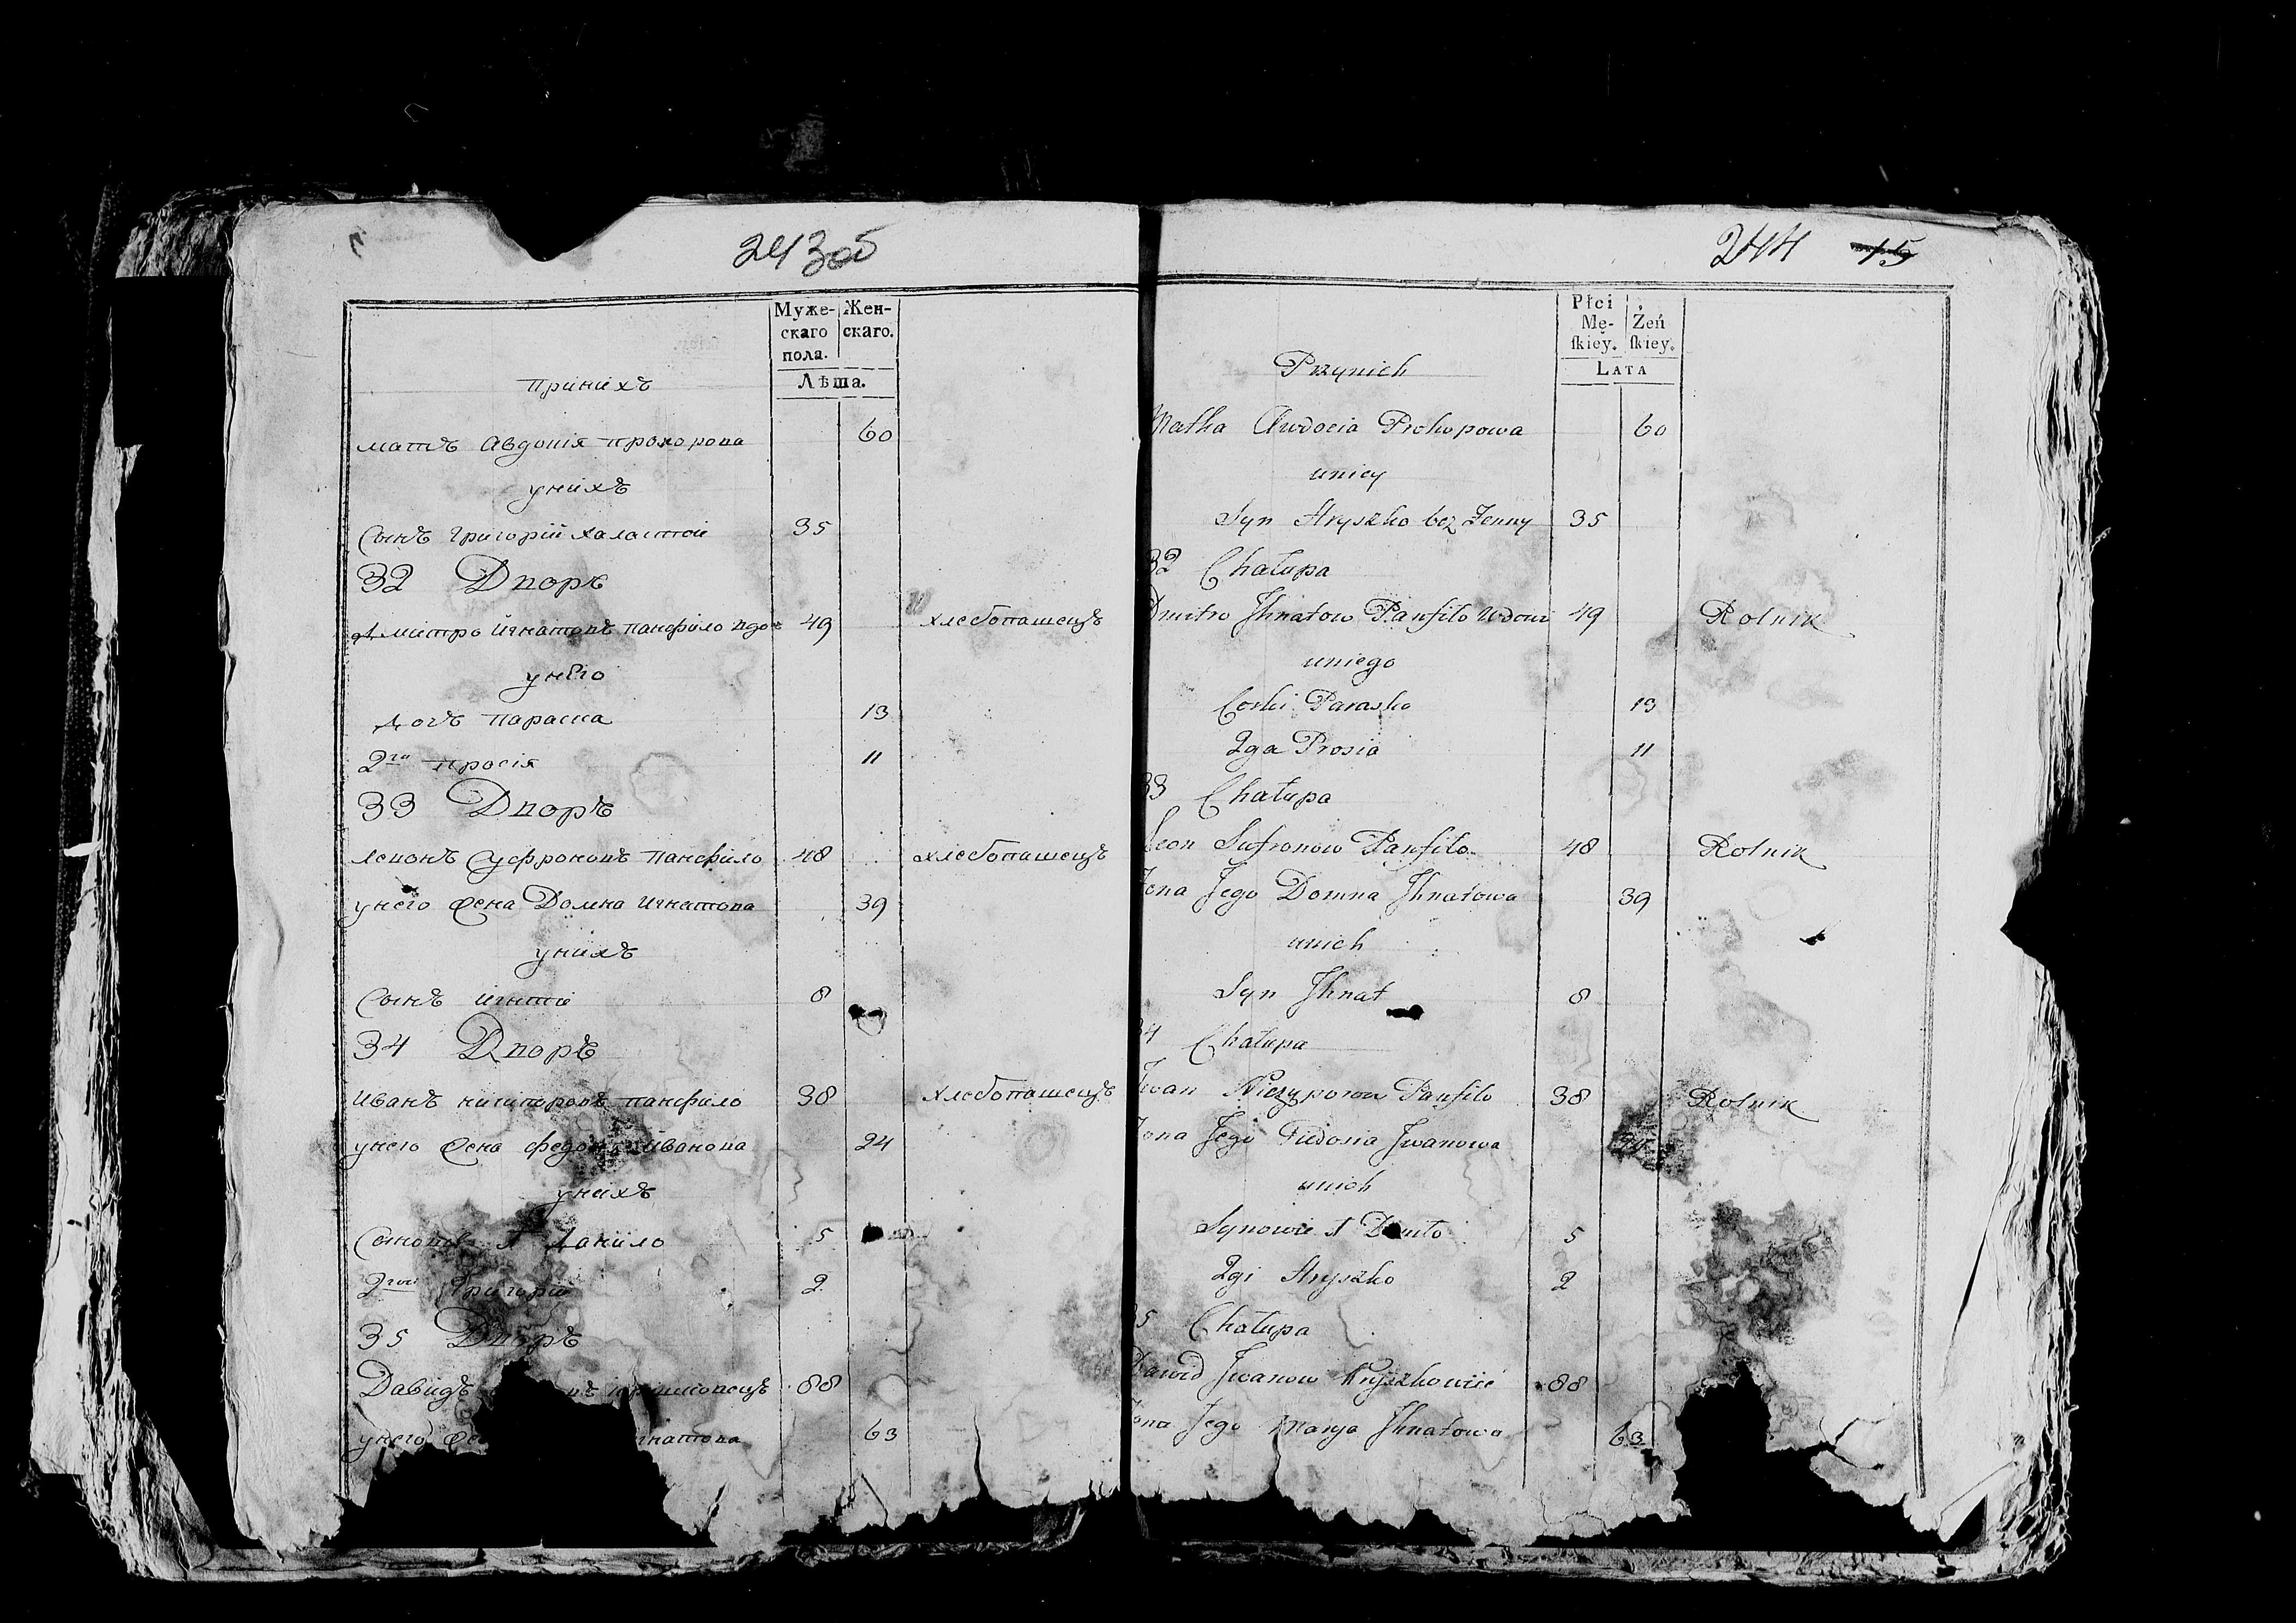 243об
Муже-
скаго
пола.
Жен-
скаго.
Лѣта.
принихъ
матъ Авдотія прохорова 60
унихъ
Сынъ григорій халостой 35
32 Дворъ
Дмитро игнатовъ панфило вдов 49 хлебопашецъ
унего
дочъ параска 13
2га просія 11
33 Дворъ
левонъ Суфроновъ панфило 48 хлебопашецъ
унего жена Домна игнатова 39
унихъ
Сынъ игнатъ 8
34 Дворъ
Иванъ ничипоровъ панфило 38 хлебопашецъ
унего жена Иванова 24
унихъ
1 данило 5
2гои григорій 2
35 Дворъ
Давидъ 88
унего 63
244 15
Płci
Mę-
skiey.
Żeń
skiey.
LATA
Przynich
Matka Awdocia Prokopowa 60
unich
Syn Hryszko bez Zenny 35
32 Chałupa
Dmitro Ihnatow Panfilo wdow 49 Rolnik
uniego
Corki Paraska 13
2ga Prosia 11
33 Chałupa
Leon Sufronow Panfilo 48 Rolnik
Zona Jego Domna Ihnatowa 39
unich
Syn Ihnat 8
34 Chałupa
Iwan Niczyporow Panfilo 38 Rolnik
Zona Jego Fiedosia Iwanowa
unich
Synowie 1 5
2gi Hryszko 2
35 Chałupa
Dawid Iwanow 88
Zona Jego Marya Ihnatowa 63